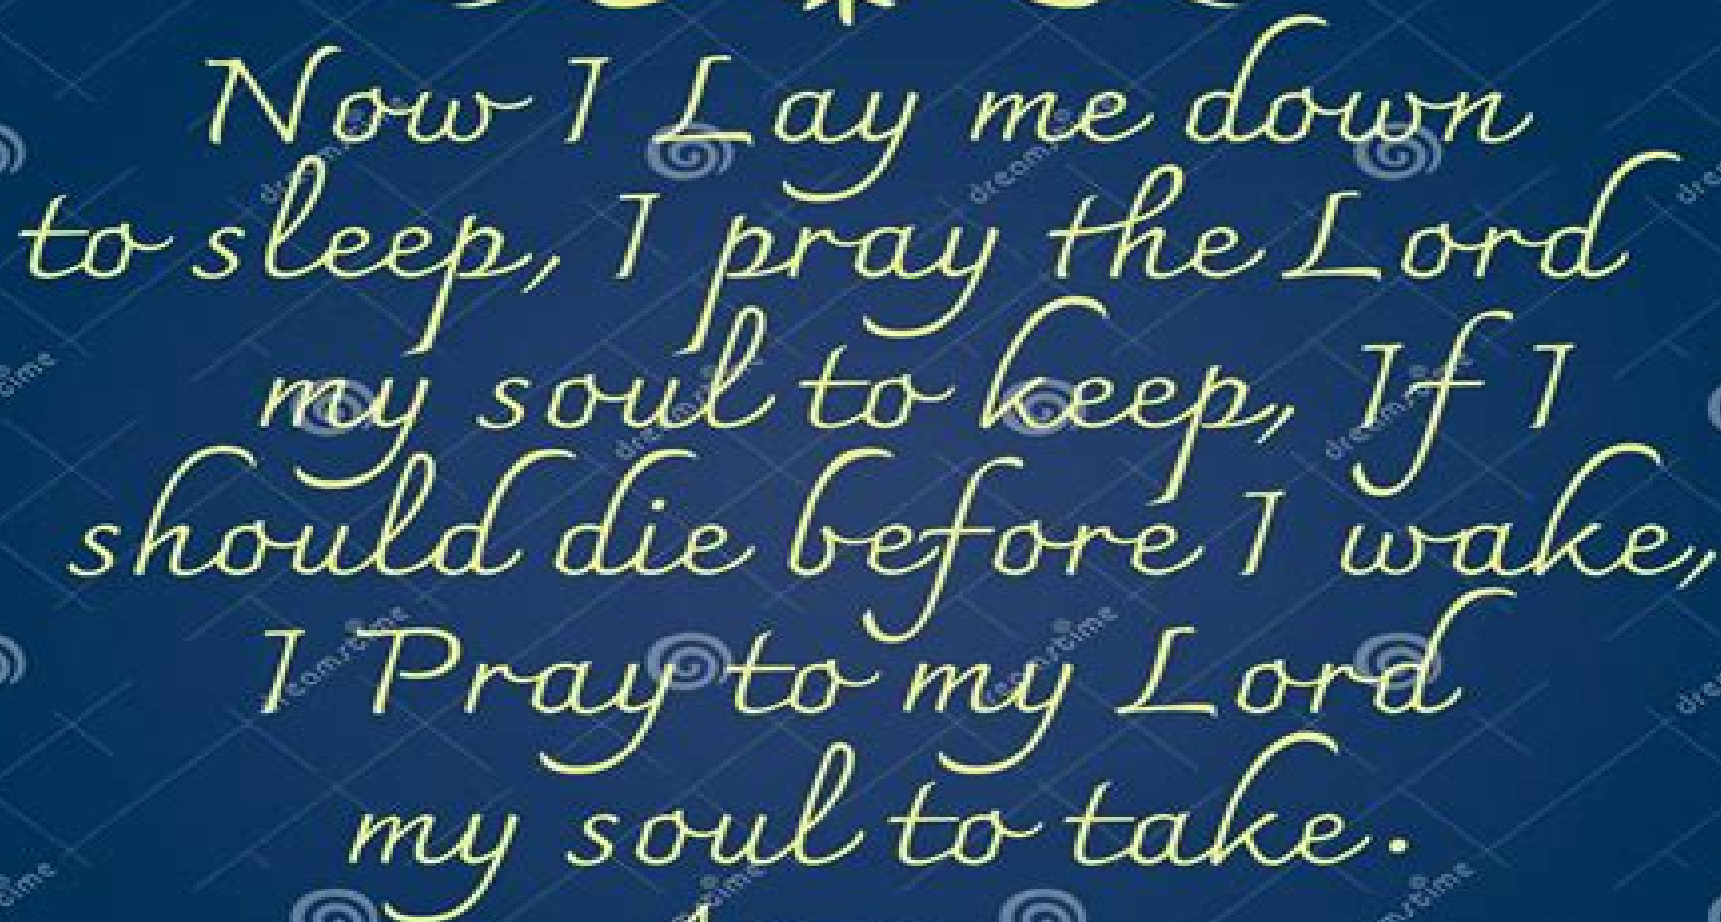 Now I Lay me down
to sleep, I pray the Lord
my soul to keep, If I
should die before I wake,
I Pray to my Lord
my soul to take.
dreamstime